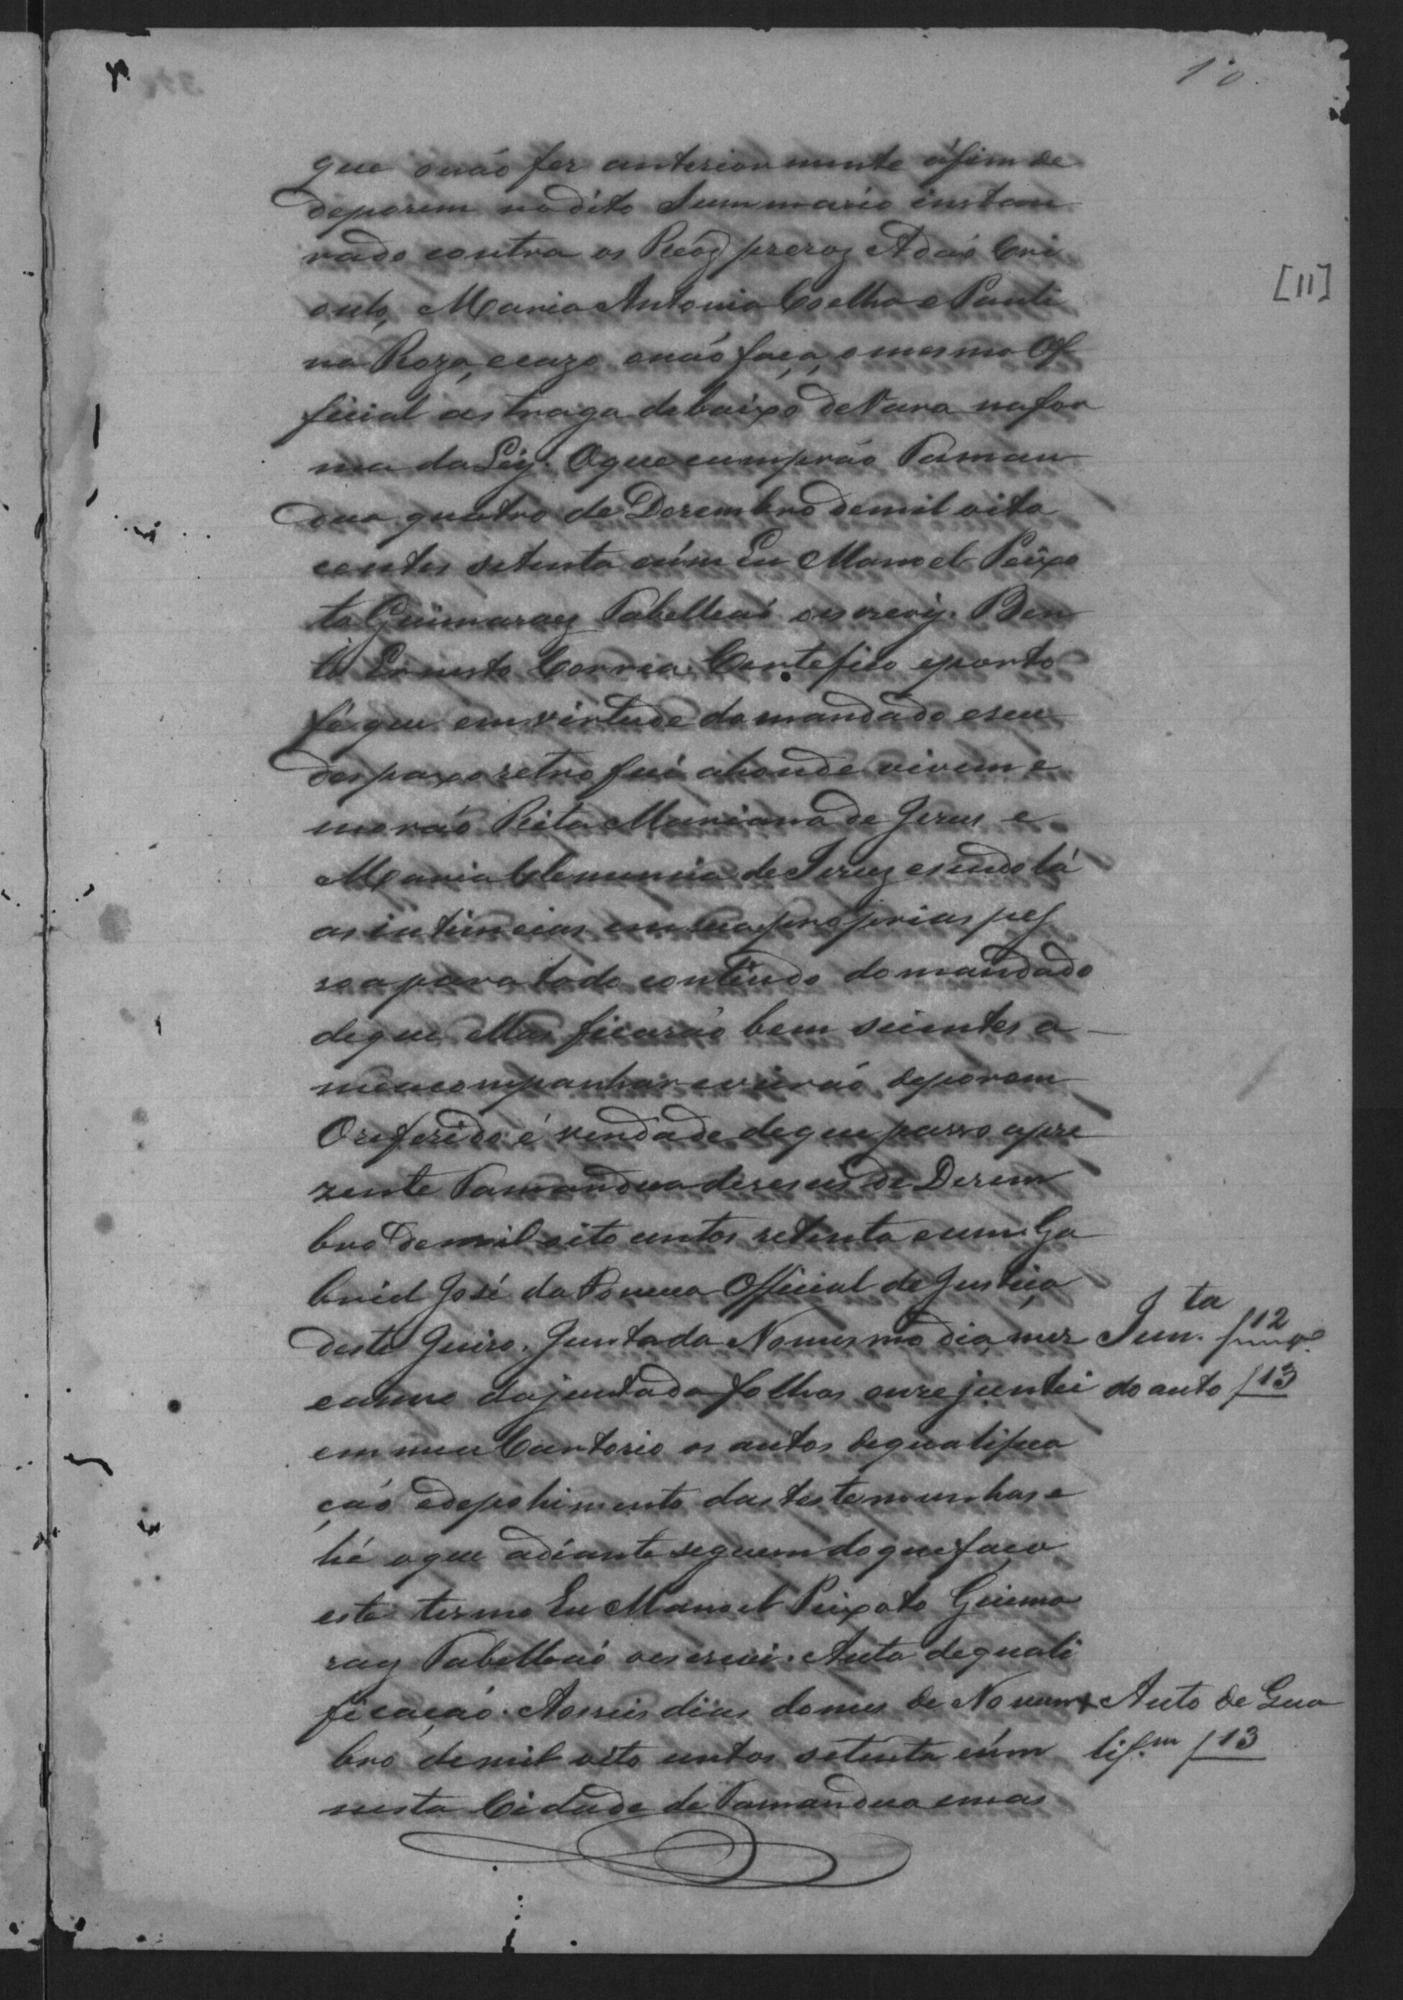 10
que onão fez anteriormente áfim de
deporem nodito Summario instau
rado contra os Reos prezos Adão Cri
oulo, Maria Antonia Coelho e Pauli
na Roza, ecazo onão faça, omesmo Of
ficial as traga debaixo deVara nafor
ma daLey. Oque cumprão Taman
dua quatro de Dezembro demil oito
centos setenta eúm Eu Manoel Peixo
to Guimaraez Tabelleaó oescrevy. Ben
to Ernesto Correa. Certefico eporto
fé que emvirtude domandado eseu
despaxo retro fui ahonde vivem e
morão Rita Marianna de Jezus e
Maria Clemencia de Jezuz esendo lá
as intimei as em sua proprias pes
soa para todo contiudo domandado
deque Mas ficarão bem scientes a
meacompanhar evirão deporem
Oreferido é verdade deque passo apre
zente Tamandua dezeseis de Dezem
bro demil oito centos setenta eum Ga
briel José da Fonceca Official de Justiça
deste Juizo. Juntada Nomesmo dia, mez
eanno dajuntada folhas onze juntei
em meu Cartorio os autos dequalifica
ção edepohimento dastestemunhas e
hé oque adiante seguem doque faço
este termo Eu Manoel Peixoto Guima
raez Tabelleaó oescrevi. Auto dequali
ficação. Aosseis dias domez de Novem
bro demil oito centos setenta eúm
nesta Cidade de Tamandua emas
[11]
Jun.ta f 12
do auto f 13
Auto de Qua
lif.am f 13